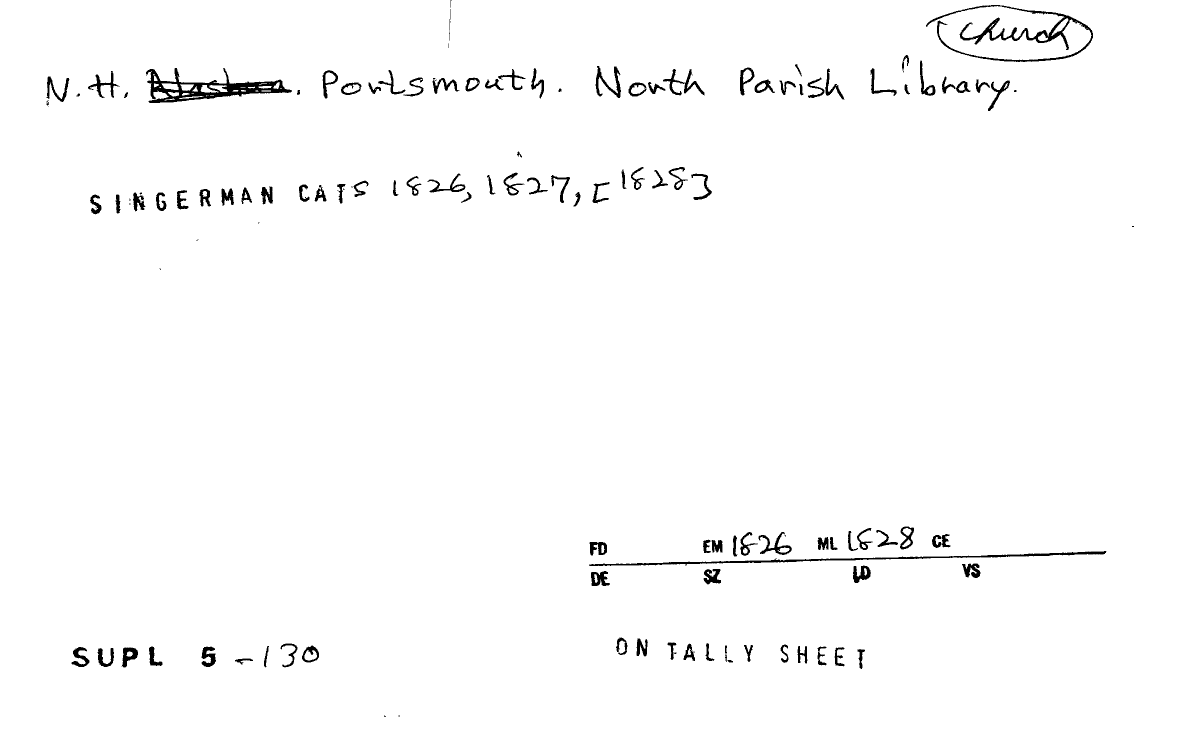 Church
N.H. Portsmouth. North Parish Library.
SINGERMAN CATS 1826, 1827, [1828]
FD EM 1826 ML 1828 CE
DE SZ LD VS
SUPL 5 -130 ON TALLY SHEET